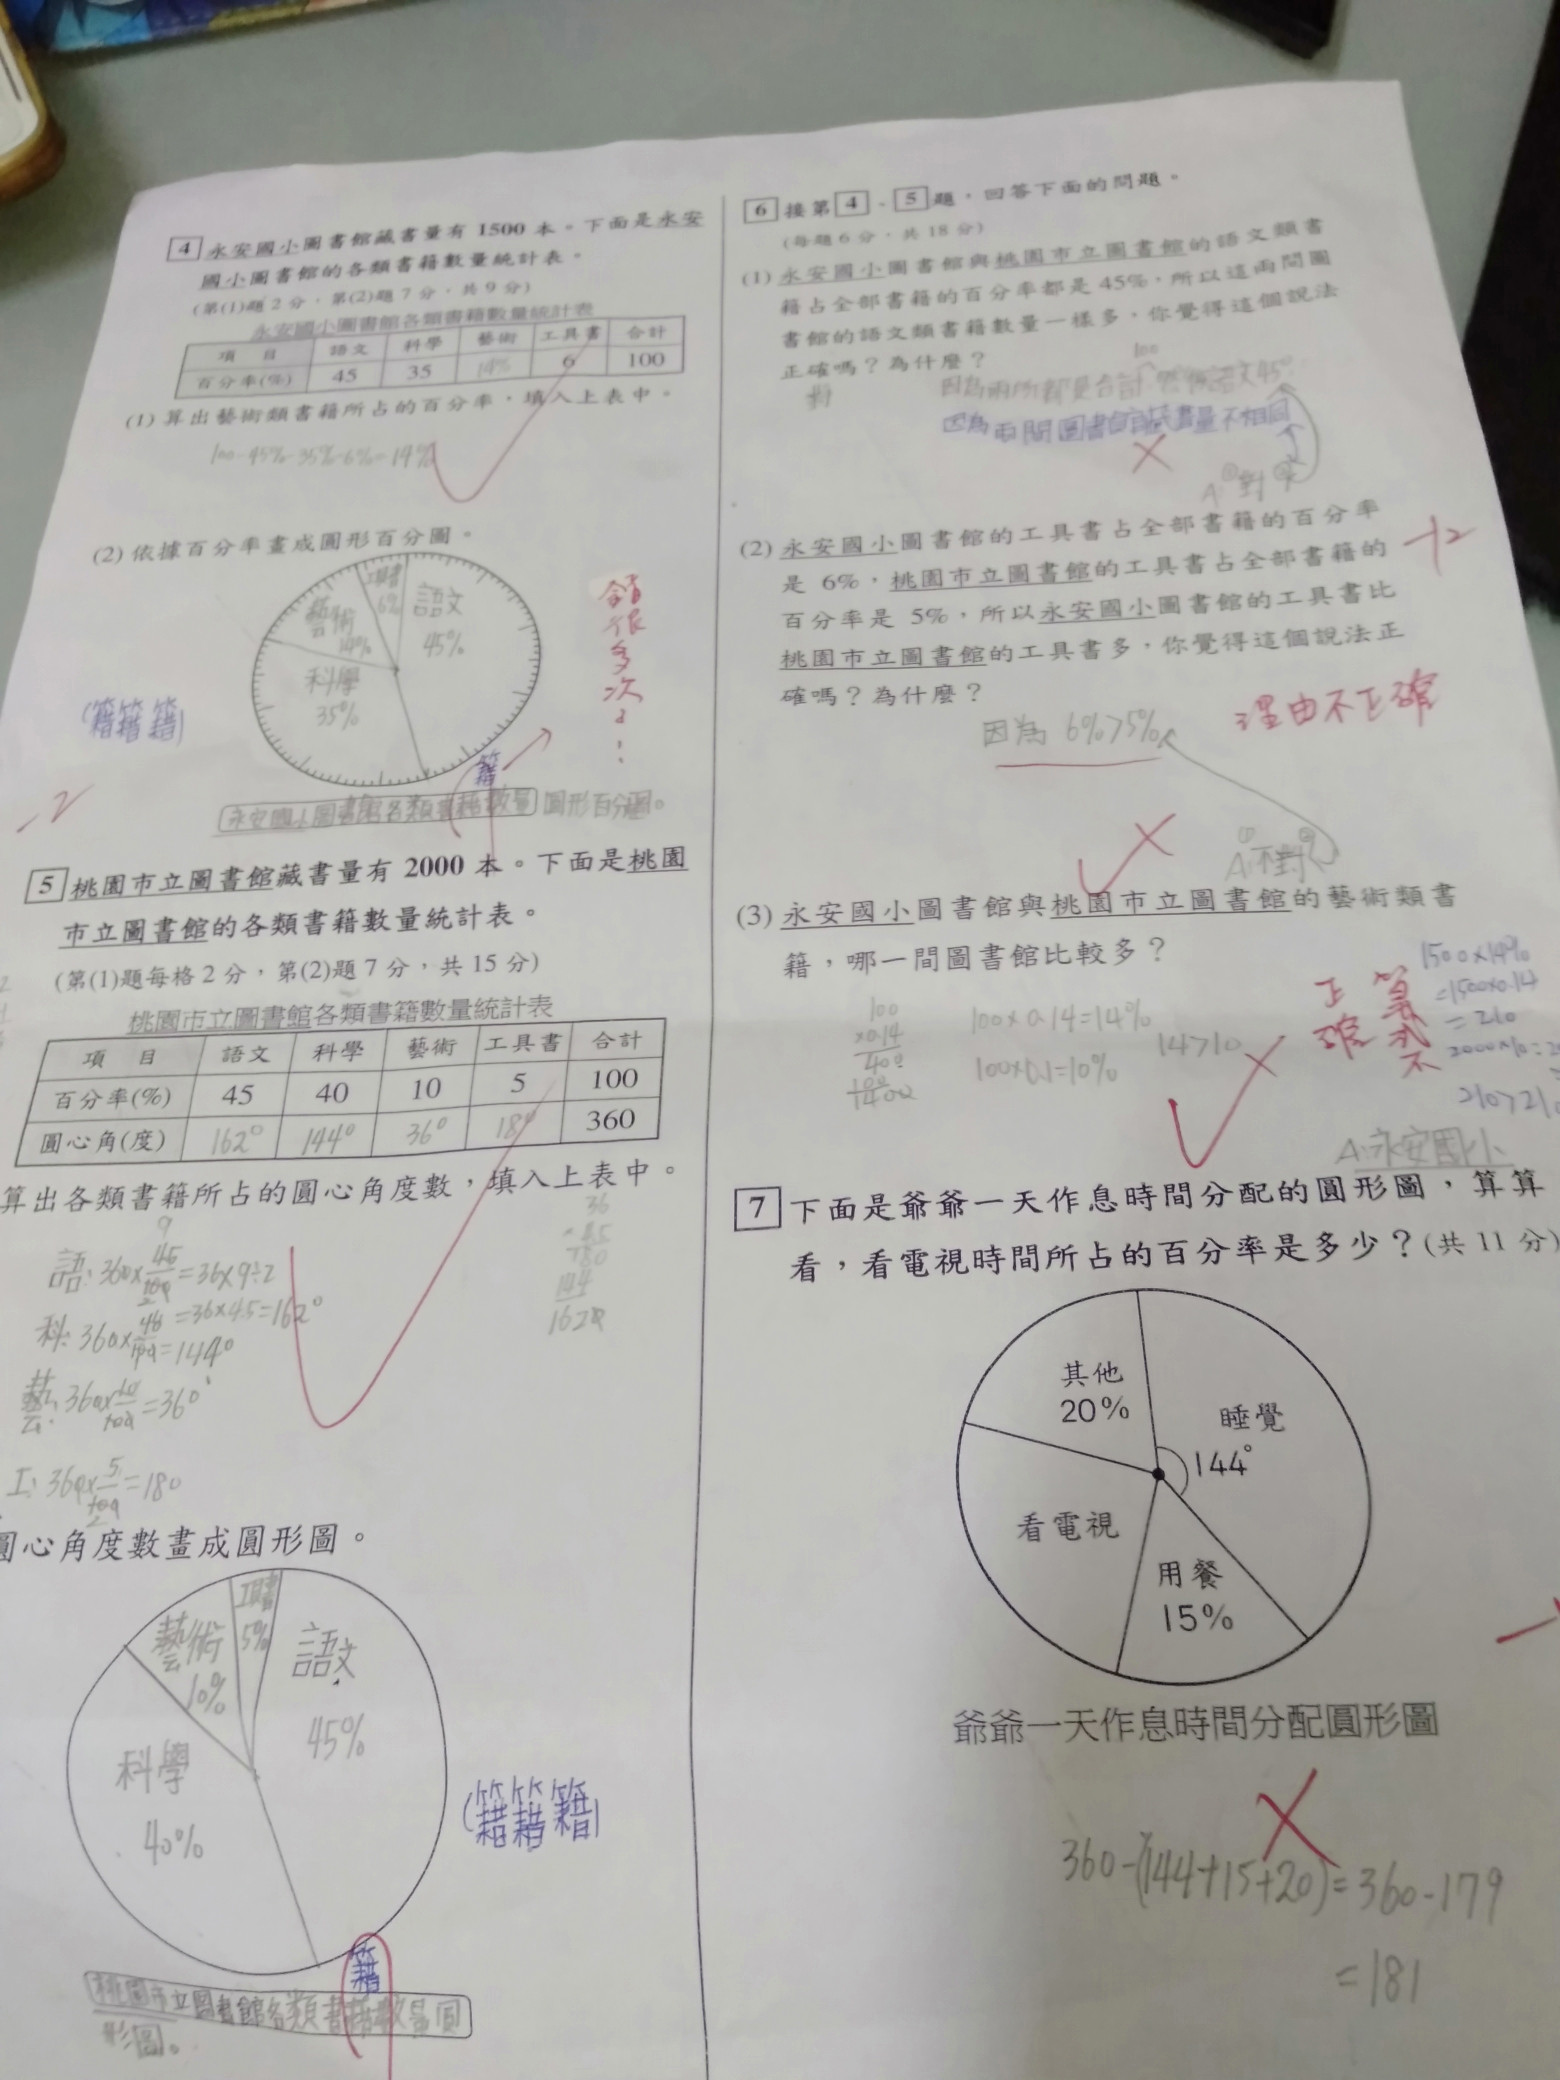 4 永安國小圖書館藏書量有 1500 本。下面是永安
國小圖書館的各類書籍數量統計表。
(第(1)題 2 分，第(2)題 7 分，共 9 分)
永安國小圖書館各類書籍數量統計表
項 目 語文 科學 藝術 工具書 合計
百分率(%) 45 35 14% 6 100
(1) 算出藝術類書籍所占的百分率，填入上表中。
100-45%-35%-6%=14%
(2) 依據百分率畫成圓形百分圖。
工具書
6%
語文
45%
藝術
14%
科學
35%
錯很多次
(籍籍籍)
籍
-2
永安國小圖書館各類書籍數量圓形百分圖。
5 桃園市立圖書館藏書量有 2000 本。下面是桃園
市立圖書館的各類書籍數量統計表。
(第(1)題每格 2 分，第(2)題 7 分，共 15 分)
桃園市立圖書館各類書籍數量統計表
項 目 語文 科學 藝術 工具書 合計
百分率(%) 45 40 10 5 100
圓心角(度) 162° 144° 36° 18° 360
算出各類書籍所占的圓心角度數，填入上表中。
語:360×45/100=36×9÷2
=36×4.5=162°
科:360×40/100=144°
藝:360×10/100=36°
工:360×5/100=18°
36
180
144
圓心角度數畫成圓形圖。
工具書
5%
藝術
10%
語文
45%
科學
40%
(籍籍籍)
籍
桃園市立圖書館各類書籍數量圓
形圖。
6 接第 4、5 題，回答下面的問題。
(每題 6 分，共 18 分)
(1) 永安國小圖書館與桃園市立圖書館的語文類書
籍占全部書籍的百分率都是 45%，所以這兩間圖
書館的語文類書籍數量一樣多，你覺得這個說法
正確嗎？為什麼？
100
對
因為兩間圖書館藏書量不相同
(2) 永安國小圖書館的工具書占全部書籍的百分率
是 6%，桃園市立圖書館的工具書占全部書籍的
百分率是 5%，所以永安國小圖書館的工具書比
桃園市立圖書館的工具書多，你覺得這個說法正
確嗎？為什麼？
-12
因為 6%>5%
理由不正確
A:不對
(3) 永安國小圖書館與桃園市立圖書館的藝術類書
籍，哪一間圖書館比較多？
100
×0.14
400
100
1400
100×0.14=14%
100×0.1=10%
14>10
算式不正確
1500×14%
=1500×0.14
=210
A:永安國小
7 下面是爺爺一天作息時間分配的圓形圖，算算
看，看電視時間所占的百分率是多少？(共 11 分)
其他
20%
睡覺
144°
看電視
用餐
15%
爺爺一天作息時間分配圓形圖
360-(144+15+20)=360-179
=181